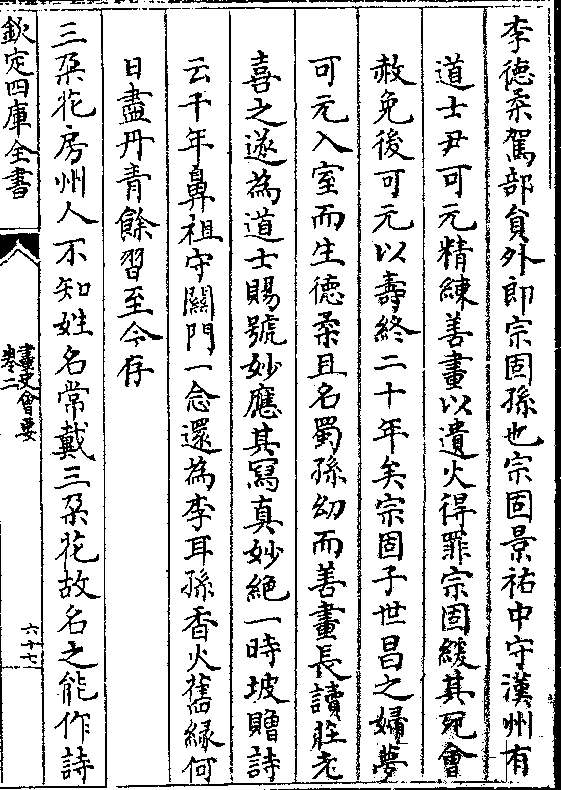 李德柔駕部員外郎宗固孫也宗固景祐中守漢州有
道士尹可元精練善畫以遺火得罪宗固緩其死會
赦免後可元以壽終二十年矣宗固子世昌之婦夢
可元入室而生德柔且名蜀孫幼而善畫長讀莊老
喜之遂為道士賜號妙應其寫真妙絕一時坡贈詩
云千年鼻祖守關門一念還為李耳孫香火舊緣何
日盡丹青餘習至今存
三朶花房州人不知姓名常戴三朶花故名之能作詩
欽定四庫全書
畫史會要
卷二
六十七